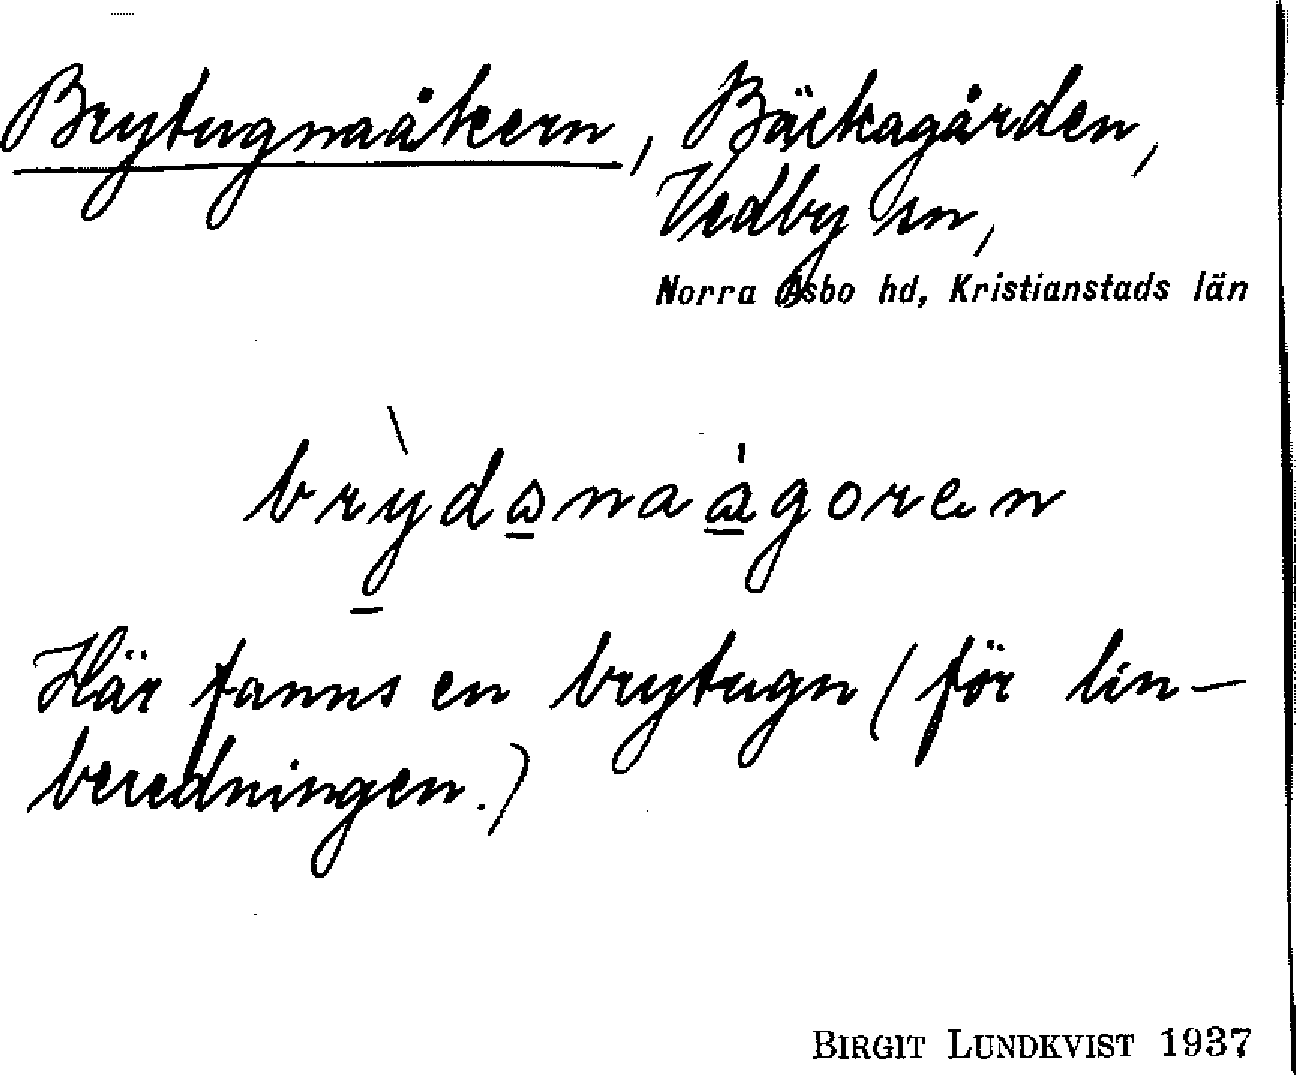 Brytugnaåkern, Bäckagården,
Vedby sn,
Norra Åsbo hd, Kristianstads län
Här fanns en brytugn (för lin-
beredningen.)
BIRGIT LUNDKVIST 1937